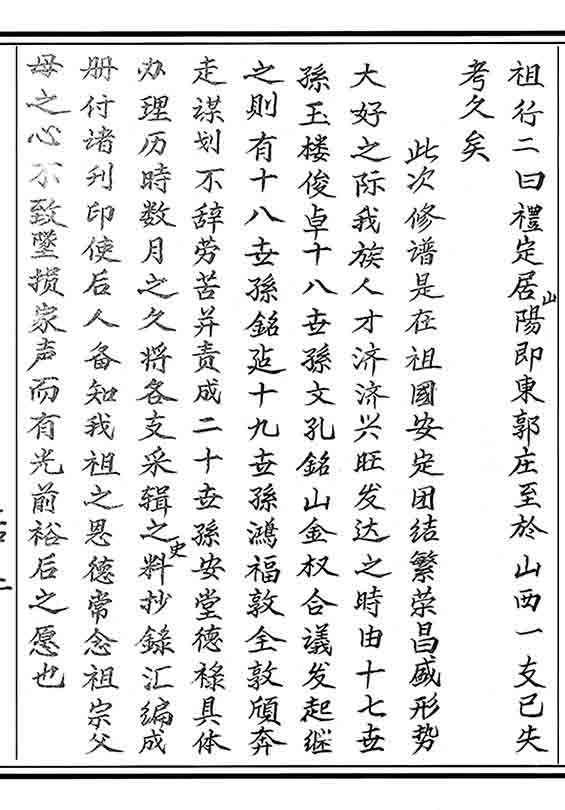 祖行二曰禮定居山陽即東郭庄至於山西一支已失
考久矣
此次修谱是在祖國安定团结繁荣昌盛形势
大好之际我族人才济济兴旺发达之時由十七世
孫玉楼俊卓十八世孫文孔銘山金权合議发起继
之則有十八世孫銘站十九世孫鴻福敦全敦頎奔
走谋划不辞劳苦并责成二十世孫安堂德禄具体
办理历時数月之久将各支采辑之史料抄錄汇编成
册付诸刊印使后人备知我祖之恩德常念祖宗父
母之心不致墜损家声而有光前裕后之愿也